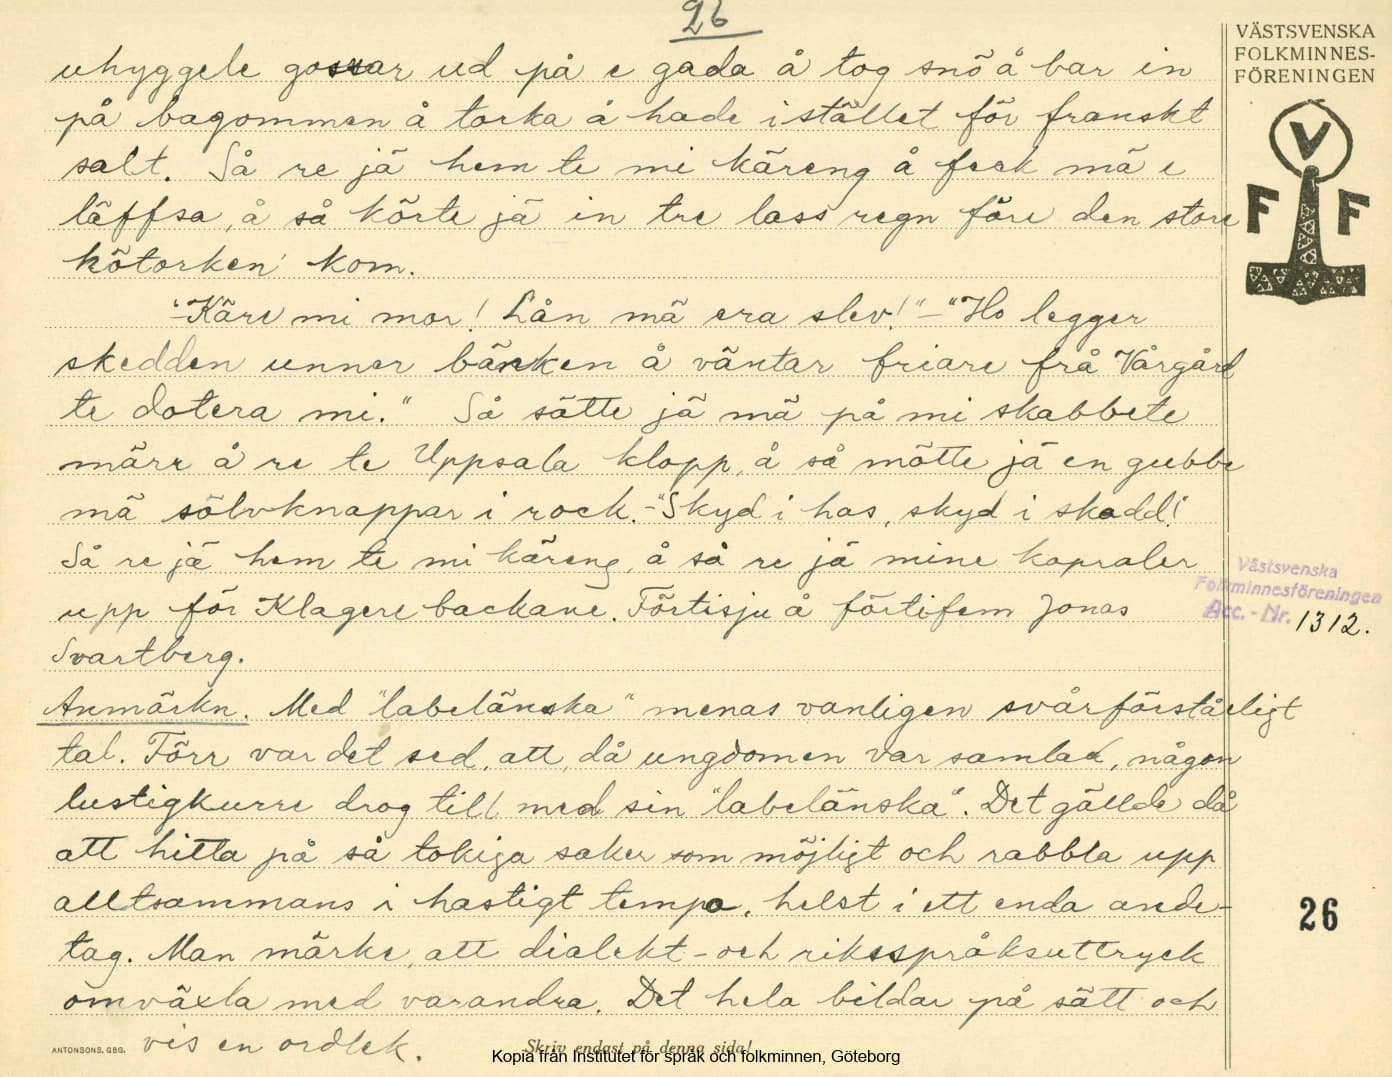 26
VÄSTSVENSKA
FOLKMINNES-
FÖRENINGEN
V
F F
uhyggele gossar ud på e gada å tog snö å bar in
på bagommen å torka å hade i stället för franskt
salt. Så re jä hem te mi käreng å feck mä e
läffsa, å så körte jä in tre lass regn före den store
kötorken kom.
"-Käre mi mor! Lån mä era slev!" - "Ho legger
skedden unner bänken å väntar friare frå Vårgård
te dotera mi." Så sätte jä mä på mi skabbete
märr å re te Uppsala klopp, å så mötte jä en gubbe
mä sölvknappar i rock. - "Skyd i has, skyd i skadd!
Så re jä hem te mi käreng, å så re jä mine kapraler
upp för Klagere backane. Förtisju å förtifem Jonas
Svartberg.
Anmärkn. Med "labelänska" menas vanligen svårförståeligt
tal. Förr var det sed, att, då ungdomen var samlad, någon
lustigkurre drog till med sin "labelänska". Det gällde då
att hitta på så tokiga saker som möjligt och rabbla upp
alltsammans i hastigt tempo, helst i ett enda ande-
tag. Man märke, att dialekt- och riksspråksuttryck
omväxla med varandra. Det hela bildar på sätt och
vis en ordlek.
Västsvenska
Folkminnesföreningen
Acc. - Nr. 1312.
26
ANTONSONS, GBG.
Skriv endast på denna sida!
Kopia från Institutet för språk och folkminnen, Göteborg